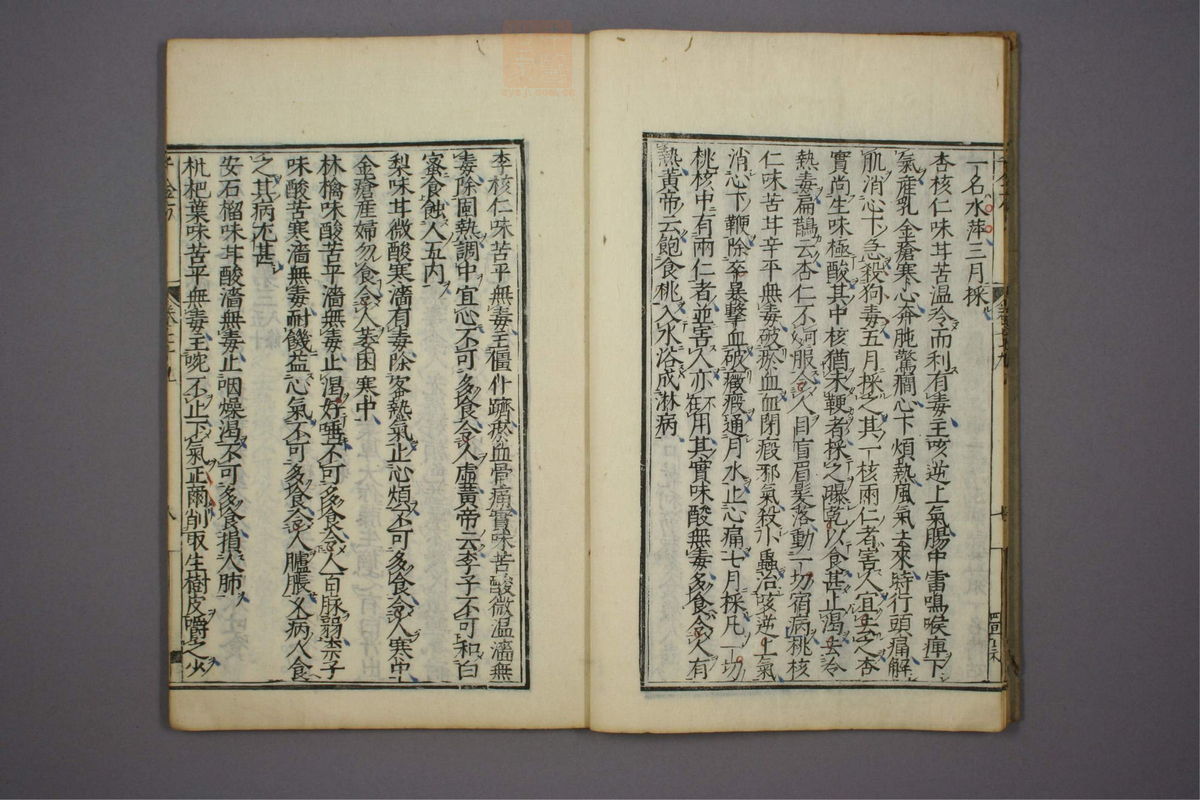 一名水萍三月採
杏核仁味苷苦溫冷而利有毒主咳逆上氣腸中雷鳴喉痺下
氣産乳金瘡寒心奔肫驚癇心下煩熱風氣去來時行頭痛解
肌消心下急殺狗毒五月採之其一核兩仁者害人宜去之杏
實尚生味極酸其中核猶未鞕者採之曝乾以食甚止渴去冷
熱毒扁鵲云杏仁不可服令人目盲眉髮落動一切宿病桃核
仁味苦甘辛平無毒破瘀血血閉瘕邪氣殺小蟲治咳逆上氣
消心下鞕除卒暴擊血破癥瘕通月水止心痛七月採凡一切
桃核中有兩仁者並害人亦不用其實味酸無毒多食令人有
熱黃帝云飽食桃入水浴成淋病
李核仁味苦平無毒主僵仆躋瘀血骨痛實味苦酸微溫濇無
毒除固熱調中宜心不可多食令人虛黃帝云李子不可和白
蜜食蝕人五內
梨味甘微酸寒濇有毒除客熱氣止心煩不可多食令人寒中
金瘡産婦勿食令人萎困寒中
林檎味酸苦平濇無毒止渴好唾不可多食令人百脉弱柰子
味酸苦寒濇無毒耐饑益心氣不可多食令人臚脹久病人食
之其病尤甚
安石榴味甘酸濇無毒止咽燥渴不可多食損人肺
枇杷葉味苦平無毒主啘不止下氣正爾削取生樹皮嚼之少